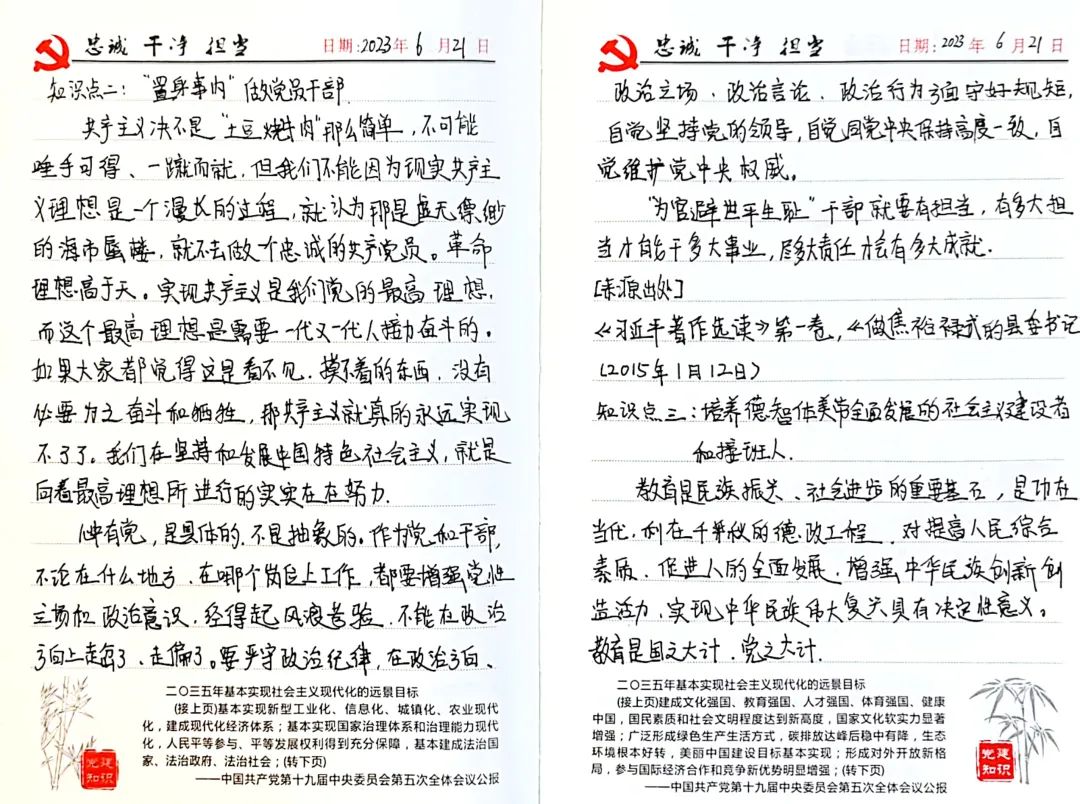 忠诚 干净 担当 日期：2023年 6月21日
知识点二："置身事内"做党员干部.
共产主义决不是"土豆烧牛肉"那么简单，不可能
唾手可得、一蹴而就，但我们不能因为现实共产主
义理想是一个漫长的过程，就认为那是虚无缥缈
的海市蜃楼，就不去做一个忠诚的共产党员。革命
理想高于天。实现共产主义是我们党的最高理想，
而这个最高理想是需要一代又一代人接力奋斗的。
如果大家都觉得这是看不见、摸不着的东西，没有
必要为之奋斗和牺牲，那共产主义就真的永远实现
不了了。我们在坚持和发展中国特色社会主义，就是
向着最高理想所进行的实实在在努力.
心中有党，是具体的，不是抽象的。作为党和干部，
不论在什么地方、在哪个岗位上工作，都要增强党性
立场和政治意识，经得起风浪考验，不能在政治
方向上走岔了、走偏了。要严守政治纪律，在政治方向、
二〇三五年基本实现社会主义现代化的远景目标
(接上页)基本实现新型工业化、信息化、城镇化、农业现代
化，建成现代化经济体系；基本实现国家治理体系和治理能力现代
化，人民平等参与、平等发展权利得到充分保障，基本建成法治国
家、法治政府、法治社会；(转下页)
——中国共产党第十九届中央委员会第五次全体会议公报
党建
知识
忠诚 干净 担当 日期：2023年 6月21日
政治立场、政治言论、政治行为方面守好规矩，
自觉坚持党的领导，自觉同党中央保持高度一致，自
觉维护党中央权威。
"为官避事平生耻"干部就要有担当，有多大担
当才能干多大事业，尽多大责任才会有多大成就.
[来源出处]
《习近平著作选读》第一卷，《做焦裕禄式的县委书记
(2015年1月12日)
知识点三：培养德智体美劳全面发展的社会主义建设者
和接班人.
教育是民族振兴、社会进步的重要基石，是功在
当代、利在千秋的德政工程，对提高人民综合
素质、促进人的全面发展、增强中华民族创新创
造活力、实现中华民族伟大复兴具有决定性意义。
教育是国之大计、党之大计.
二〇三五年基本实现社会主义现代化的远景目标
(接上页)建成文化强国、教育强国、人才强国、体育强国、健康
中国，国民素质和社会文明程度达到新高度，国家文化软实力显著
增强；广泛形成绿色生产生活方式，碳排放达峰后稳中有降，生态
环境根本好转，美丽中国建设目标基本实现；形成对外开放新格
局，参与国际经济合作和竞争新优势明显增强；(转下页)
——中国共产党第十九届中央委员会第五次全体会议公报
党建
知识